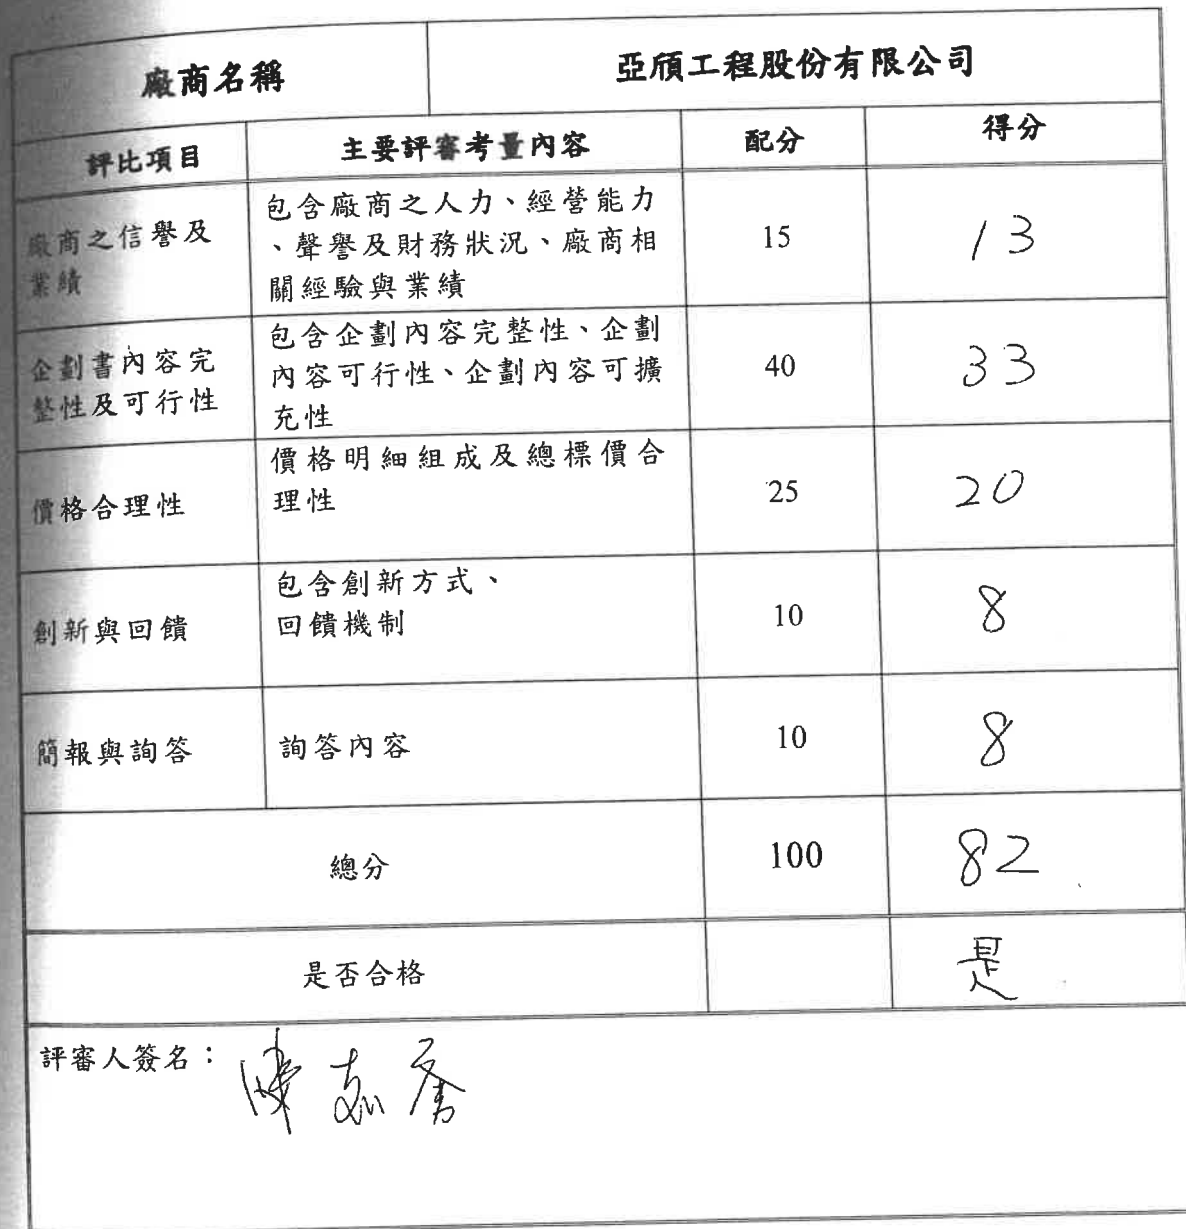 廠商名稱 亞頎工程股份有限公司
評比項目 主要評審考量內容 配分 得分
廠商之信譽及業績 包含廠商之人力、經營能力、聲譽及財務狀況、廠商相關經驗與業績 15 13
企劃書內容完整性及可行性 包含企劃內容完整性、企劃內容可行性、企劃內容可擴充性 40 33
價格合理性 價格明細組成及總標價合理性 25 20
創新與回饋 包含創新方式、回饋機制 10 8
簡報與詢答 詢答內容 10 8
總分 100 82
是否合格 是
評審人簽名：陳